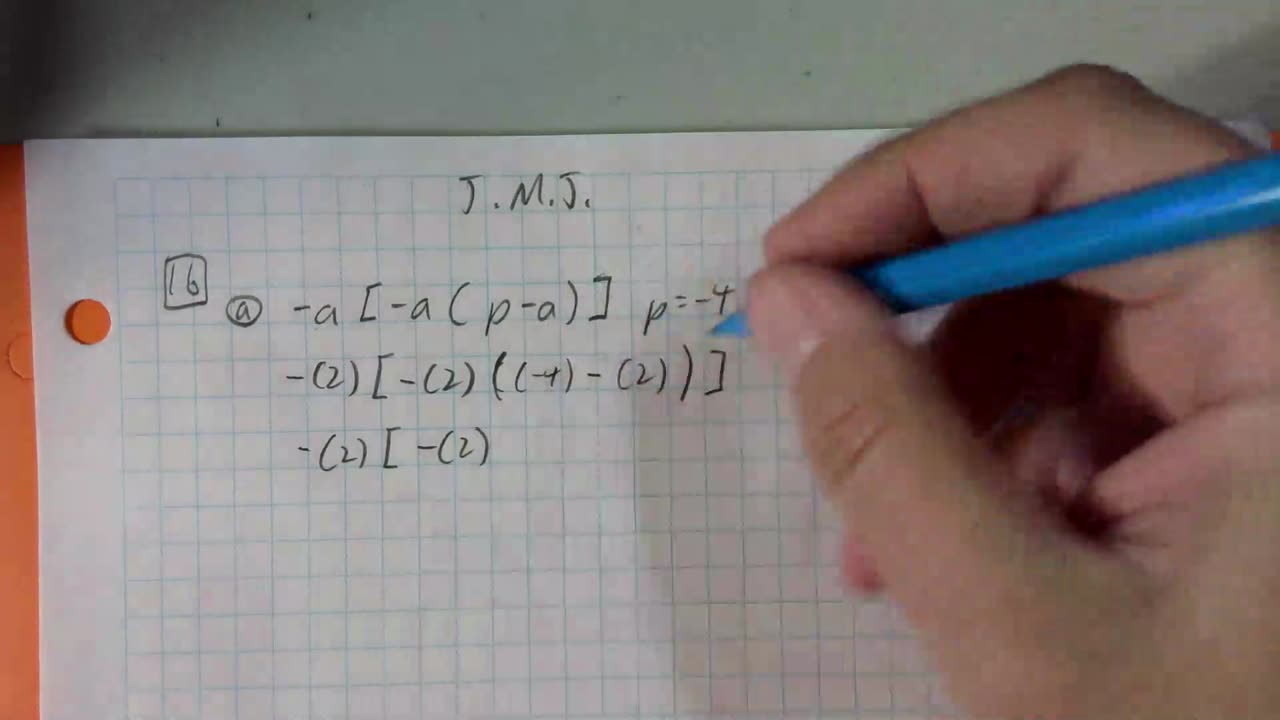 J.M.J.
16 a -a[-a(p-a)] p=-4
-(2)[-(2)((-4)-(2))]
-(2)[-(2)